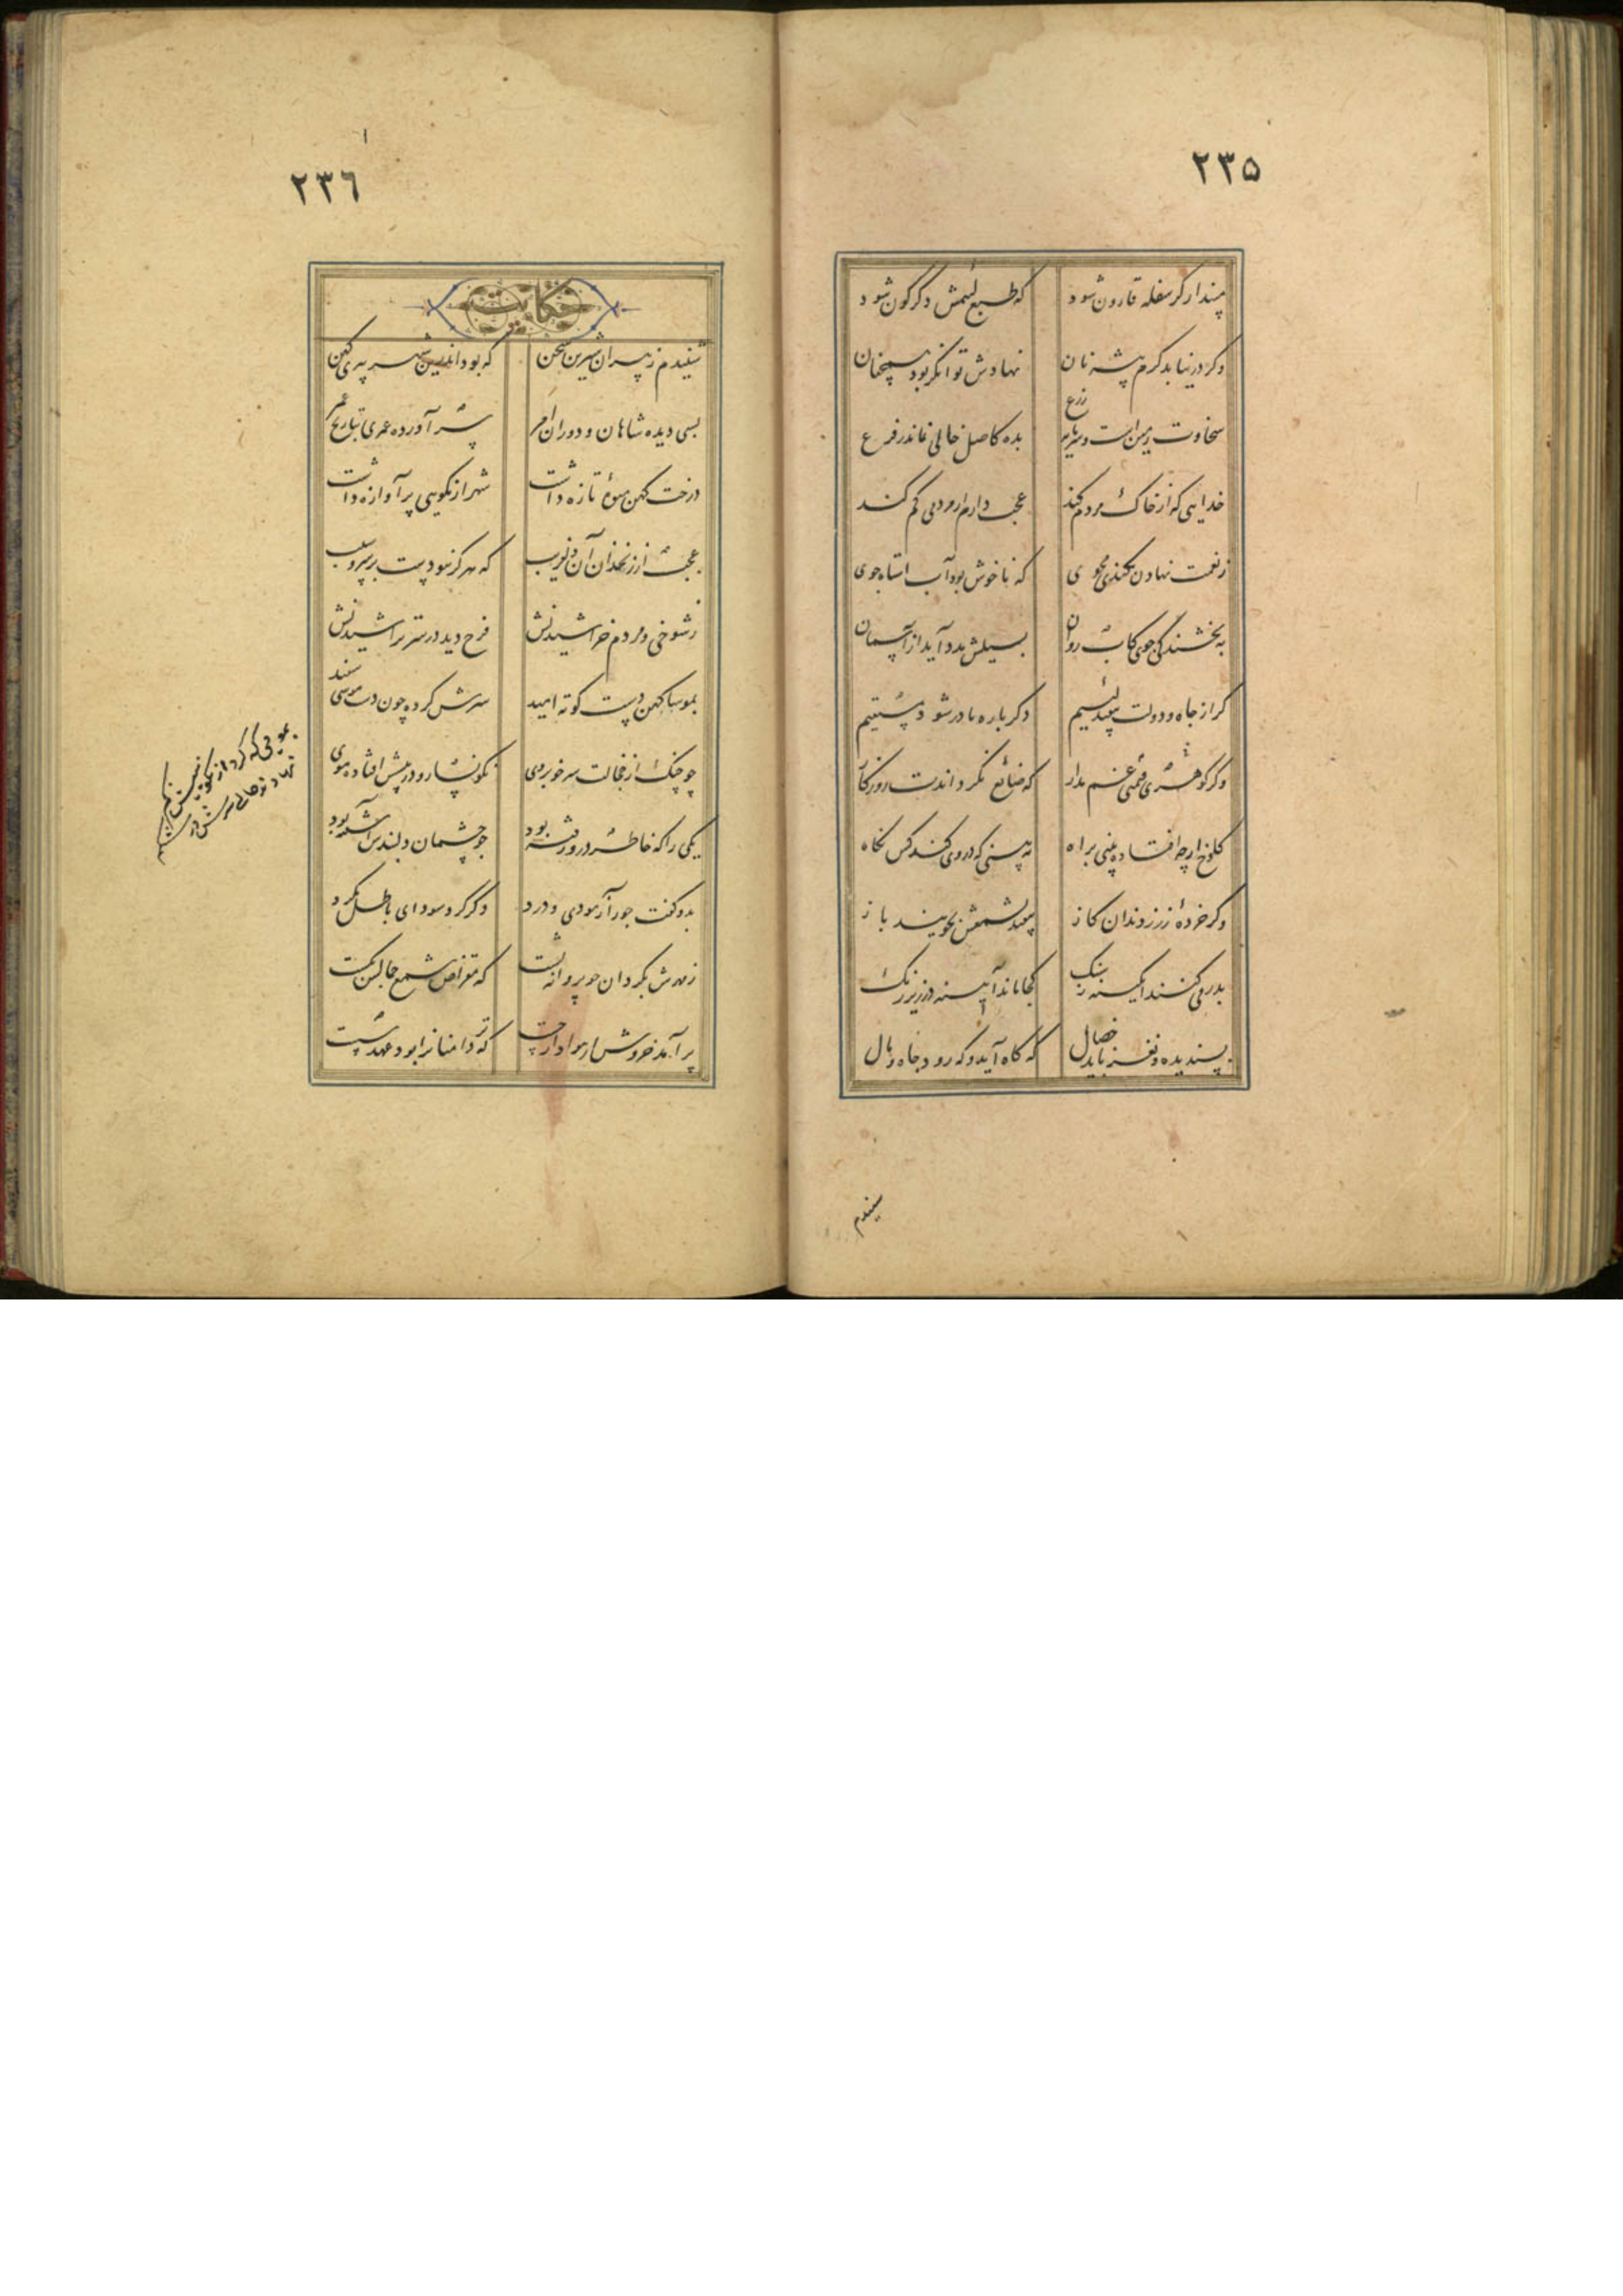 ٢٣۵
مپندار کر سفله قارون شود که طبع لئیمش دکرکون شود
وکر درنیابد کرم پیشه نان نهادش توانکر بود همچنان
سخاوت زمین است و سرمایه زرع بده کاصل خالی نماند ز فرع
خدایی که از خاک مردم کند عجب دارم ار مردمی کم کند
ز نعمت نهادن بلندی مجوی که ناخوش بود آب استاده جوی
به بخشندکی جوی کاب روان بسیلش مدد آید از آسمان
کر از جاه و دولت بیفتد لئیم دکر باره نادر شود مستقیم
وکر کوهری قیمتی غم مدار که ضائع نکرداندت روزکار
کلوخ ارچه افتاده بینی براه نه بینی که در وی کند کس نکاه
وکر خردهٔ زر ز دندان کاز بیفتد بشمعش بجویند باز
بدر می کنند آبکینه ز سنک کجا ماند آیینه در زیر زنک
پسندیده و نغز باید خصال که کاه آید و که رود جاه و مال
شنیدم
٢٣٦
حکایت
شنیدم ز پیران شیرین سخن که بود اندرین شهر پیری کهن
بسی دیده شاهان و دوران و امر سر آورده عمری بتاریخ عمر
درخت کهن میوهٔ تازه داشت شهر از نکویی پر آوازه داشت
عجب از زنخدان آن دلفریب که هرکز نبودست بر سرو سیب
ز شوخی و مردم خراشیدنش فرح دید در سر تراشیدنش
بموسا کهن دست کوته امید سرش کرده چون دست موسی سفید
چو چنک از خجالت سر خوبروی نکونسار و در پیش افتاده موی
یکی را که خاطر درو رفته بود چو چشمان دلبندش آشفته بود
بدو کفت جور آزمودی و درد دکر کرد سودای باطل مکرد
ز مهرش بکردان چو پروانه پشت که مقراض شمع جمالش بکشت
برآمد خروش از هوادار چست که تردامنان را بود عهد سست
بمویی که کرد از نکوییش کم
نهادند حالی سرش در شکم